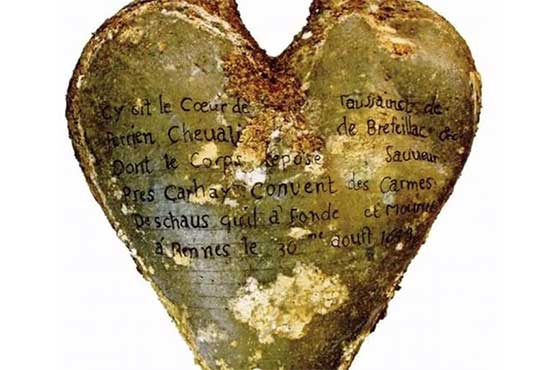 Cy Git le Cœur de Taussainct de
Perrien Chevali de Brefeillac
Dont le Corps Repose Sauveur
Pres Carhay Convent des Carmes
Deschaus quil à Fonde et Mourut
à Rennes le 30 me aoust